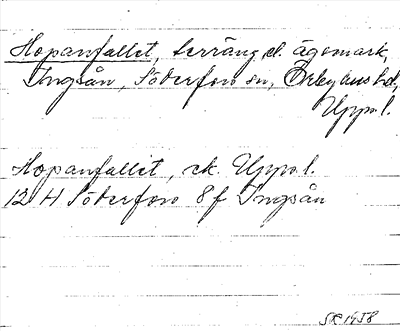 Hopanfallet, terräng el. ägomark,
Ingsån, Söderfors sn, Örbyhus hd,
Uppl.
Hopanfallet, ek. Uppl.
12 H Söderfors 8 f Ingsån
SR 1958